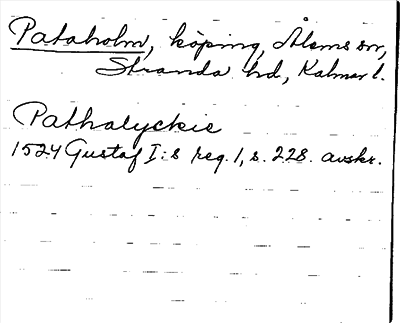 Pataholm, köping, Ålems sn,
Stranda hd, Kalmar l.
Pathalyckie
1524 Gustaf I:s reg. 1, s. 228. avskr.